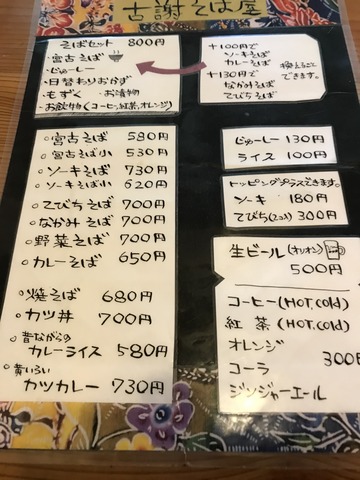 古謝そば屋
そばセット 800円
・宮古そば
・じゅーしー
・日替わりおかず
・もずく ・お漬物
・お飲物(コーヒー,紅茶,オレンジ)
+100円で
ソーキそば
カレーそば
+130円で
なかみそば
てびちそば
換えることができます。
○宮古そば 580円
○宮古そば小 530円
○ソーキそば 730円
○ソーキそば小 620円
○てびちそば 700円
○なかみそば 700円
○野菜そば 700円
○カレーそば 650円
○焼そば 680円
○カツ丼 700円
○昔ながらの
カレーライス 580円
○黄いろい
カツカレー 730円
じゅーしー 130円
ライス 100円
トッピングプラスできます。
ソーキ 180円
てびち(2コ入) 300円
生ビール(オリオン)
500円
コーヒー(HOT.cold)
紅茶(HOT.cold)
オレンジ
コーラ
ジンジャーエール
300円